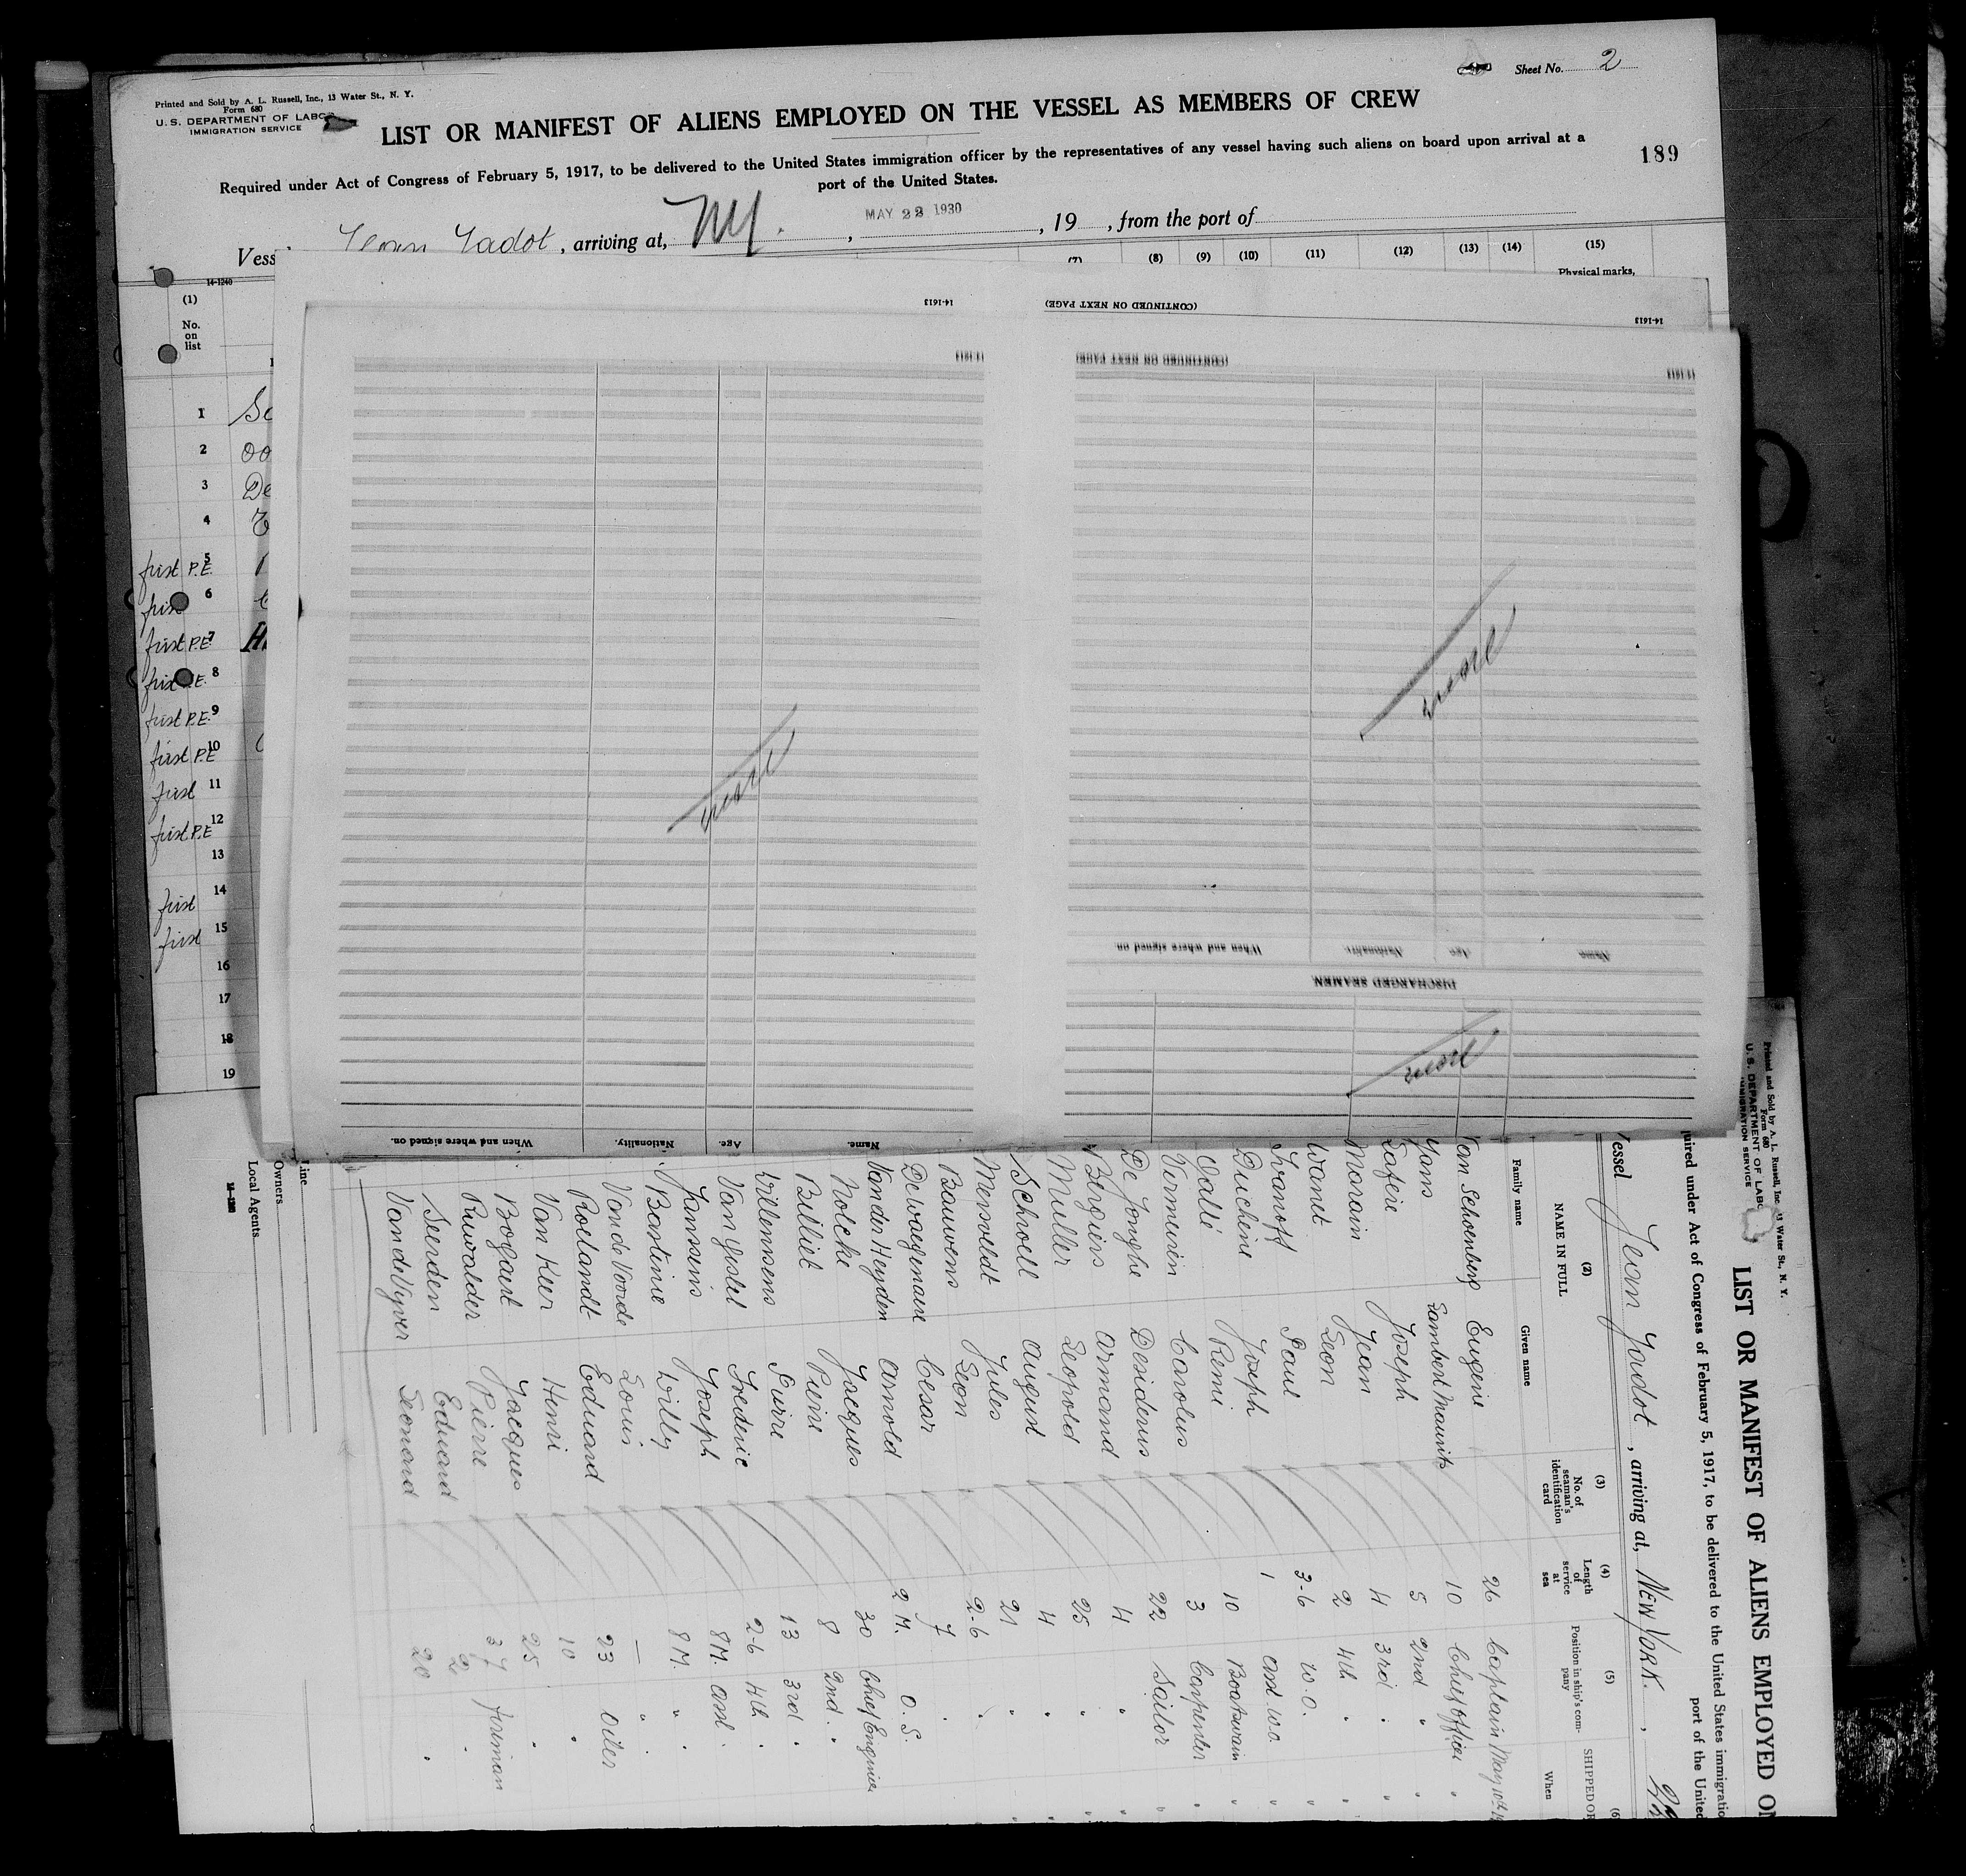 Printed and Sold by A. L. Russell, Inc., 13 Water St., N. Y.
Form 680
U. S. DEPARTMENT OF LABOR
IMMIGRATION SERVICE
Sheet No. 2
LIST OR MANIFEST OF ALIENS EMPLOYED ON THE VESSEL AS MEMBERS OF CREW
189
Required under Act of Congress of February 5, 1917, to be delivered to the United States immigration officer by the representatives of any vessel having such aliens on board upon arrival at a
port of the United States.
Vess Jean Jadot, arriving at, NY. , MAY 22 1930, 19 , from the port of
14-1240
(7) (8) (9) (10) (11) (12) (13) (14) (15)
Physical marks,
(1)
No.
on
list
1 Sc
2 Oo
3 De
4
first P.E. 5
6
first P.E. 7 H
8
first P.E. 9
first P.E 10
first 11
first P.E 12
13
first 14
first 15
16
17
18
19
14-1613
(CONTINUED ON NEXT PAGE)
14-1613
(CONTINUED ON NEXT PAGE)
none
none
When and where signed on
Nationality.
Age.
Name.
DISCHARGED SEAMEN.
none
When and where signed on.
Nationality.
Age.
Name.
Printed and Sold by A. L. Russell, Inc., 13 Water St., N. Y.
Form 680
U. S. DEPARTMENT OF LABOR
IMMIGRATION SERVICE
LIST OR MANIFEST OF ALIENS EMPLOYED ON
quired under Act of Congress of February 5, 1917, to be delivered to the United States immigratio
port of the United
essel Jean Jadot, arriving at, NEW YORK. , 22
(2) (3) (4) (5) (6)
NAME IN FULL
Family name Given name
No. of seaman's identification card
Length of service at sea
Position in ship's company
SHIPPED OR
When
Van Schoenberg Eugene 26 Captain May
Yans Lambert Maurits 10 Chief officer "
Lafere Joseph 5 2nd " "
Morain Jean 4 3rd " "
Wanet Leon 2 4th " "
Ivanoff Paul 3-6 W.O. "
Duchene Joseph 1 asst W.O "
Dallé Remi 10 Boatswain "
Vermeiren Carolus 3 Carpenter "
De Jonghe Desiderius 22 Sailor "
Bergiers Armand 4 "
Muller Leopold 25 "
Schroell August 4 "
Mersveldt Jules 21 "
Bauwens Leon 2-6 "
Dewaegenaere Cesar 7 "
Vander Heyden Arnold 2 M. O. S.
Nolcke Jacques 30 Chief Engineer
Billiet Pierre 8 2nd "
Willemsens Pierre 13 3rd "
Van Gestel Frederic 2-6 4th "
Janssens Joseph 8M. asst. "
Bastine Willy 8M. "
Van de Voorde Louis — "
Roelandt Eduard 23 Oiler
Van Keer Henri 10 "
Bogaert Jacques 25 "
Ruwalder Pierre 37 fireman
Serden Eduard 2 "
Van de Vyver Leonard 20 "
Line
Owners
Local Agents